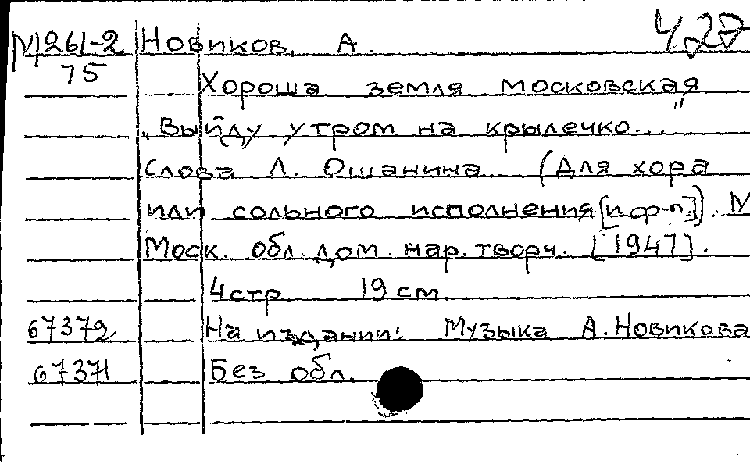 N1261-2 Новиков, А. 427
75
Хороша земля московская
„Выйду утром на крылечко..."
Слова Л. Ошанина. (Для хора
или сольного исполнения [и ф-п.]). М
Моск. обл. дом нар. творч. [1947].
4 стр 19 см
67372 На издании: Музыка А. Новикова
67371 Без обл.